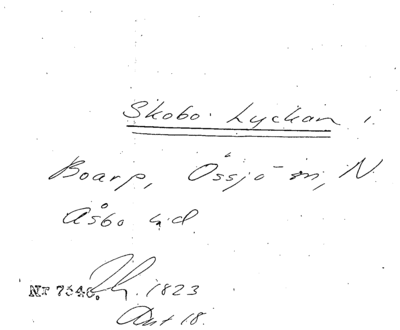 Skobo. Lyckan i
Boarp, Össjö sn, N.
Åsbo hd.
Nr 7646. 1823
Ant 18.